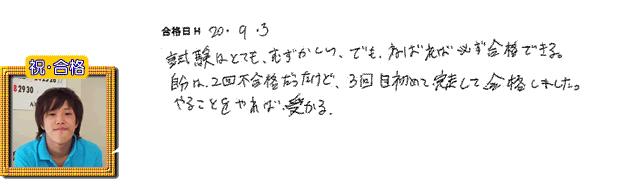 合格日 H 20・9・3
試験はとても、むずかしい、でも、がんばれば必ず合格できる。
自分は、2回不合格だったけど、3回目初めて完走して合格しました。
やることをやれば、受かる。
祝・合格
8 29 30